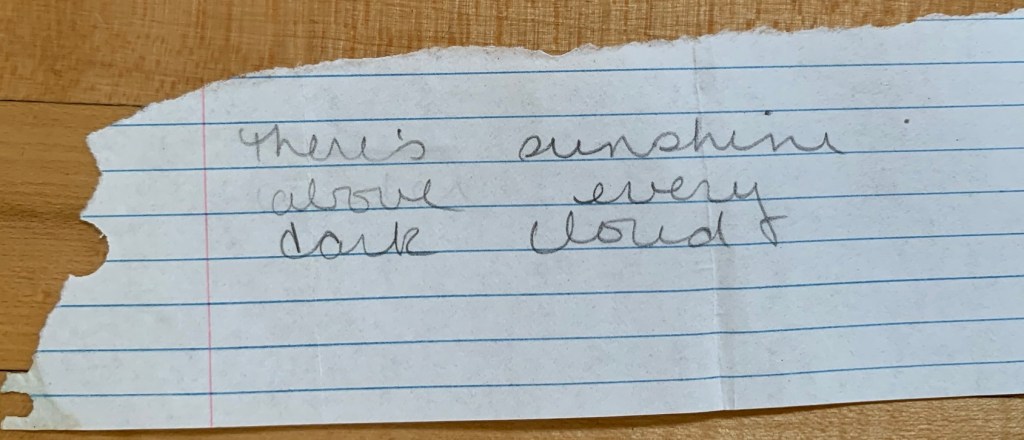 there's sunshine
above every
dark cloud